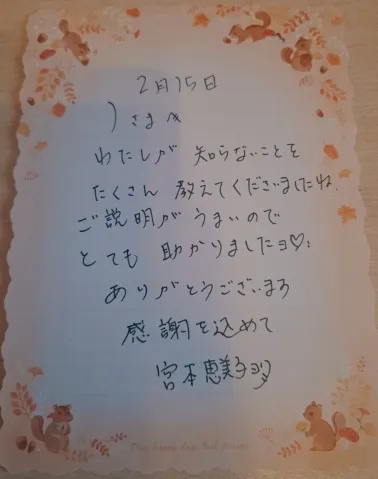 2月15日
さまへ
わたしが 知らないことを
たくさん 教えてくださいましたね.
ご説明が うまいので
とても 助かりましたヨ♡
ありがとうございます
感謝を込めて
宮本恵美子ヨリ